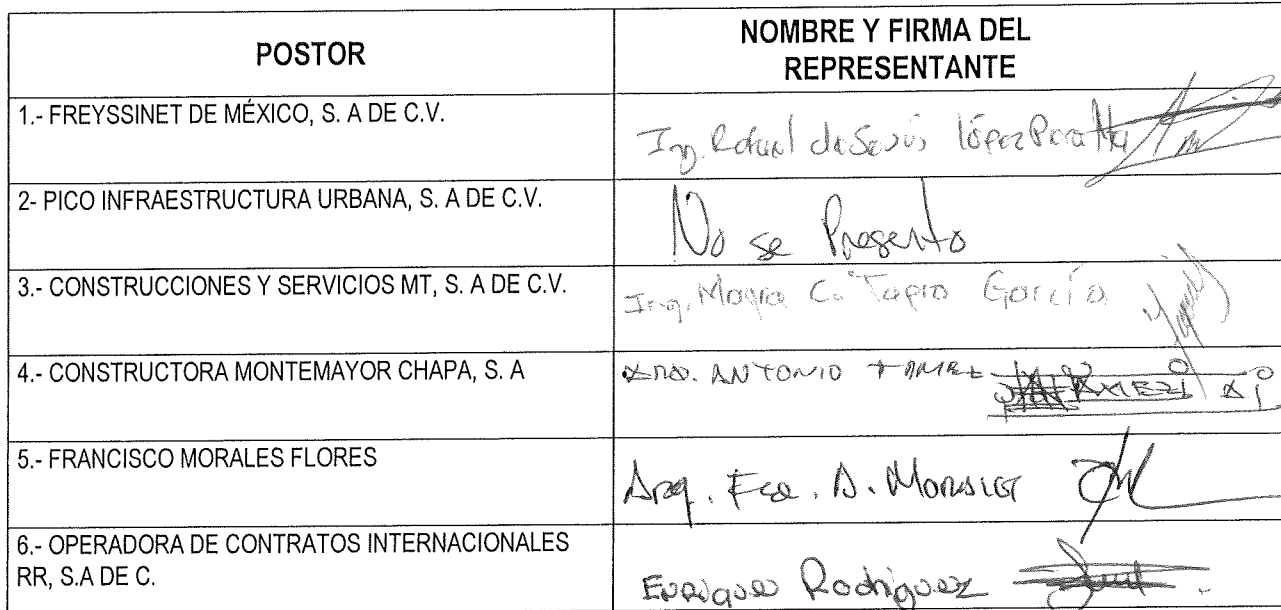 POSTOR
NOMBRE Y FIRMA DEL
REPRESENTANTE
1.- FREYSSINET DE MÉXICO, S. A DE C.V.
Ing. Rafael de Jesús López
2- PICO INFRAESTRUCTURA URBANA, S. A DE C.V.
No se Presento
3.- CONSTRUCCIONES Y SERVICIOS MT, S. A DE C.V.
Ing. Mayra C. Tapia García
4.- CONSTRUCTORA MONTEMAYOR CHAPA, S. A
ANTONIO TAMEZ
5.- FRANCISCO MORALES FLORES
Arq. Fco. A. Morales
6.- OPERADORA DE CONTRATOS INTERNACIONALES
RR, S.A DE C.
Enrique Rodriguez